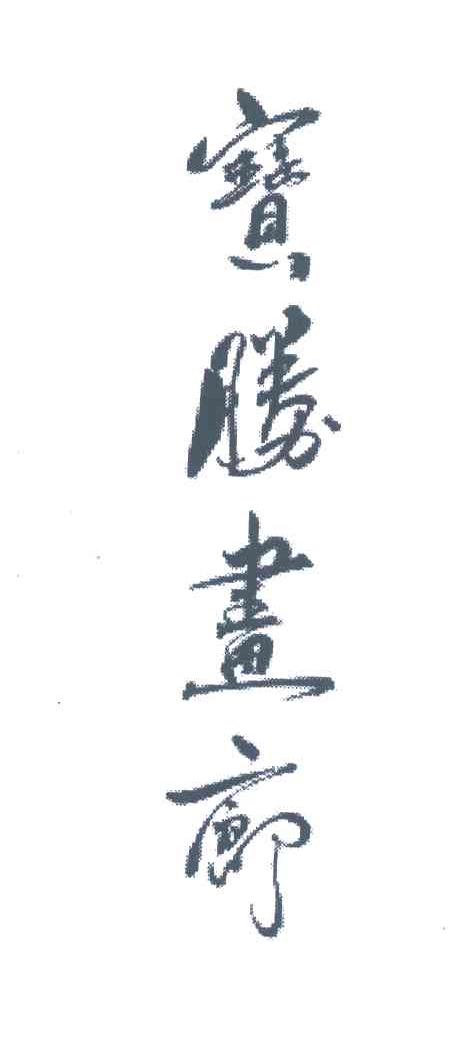 寶勝畫廊